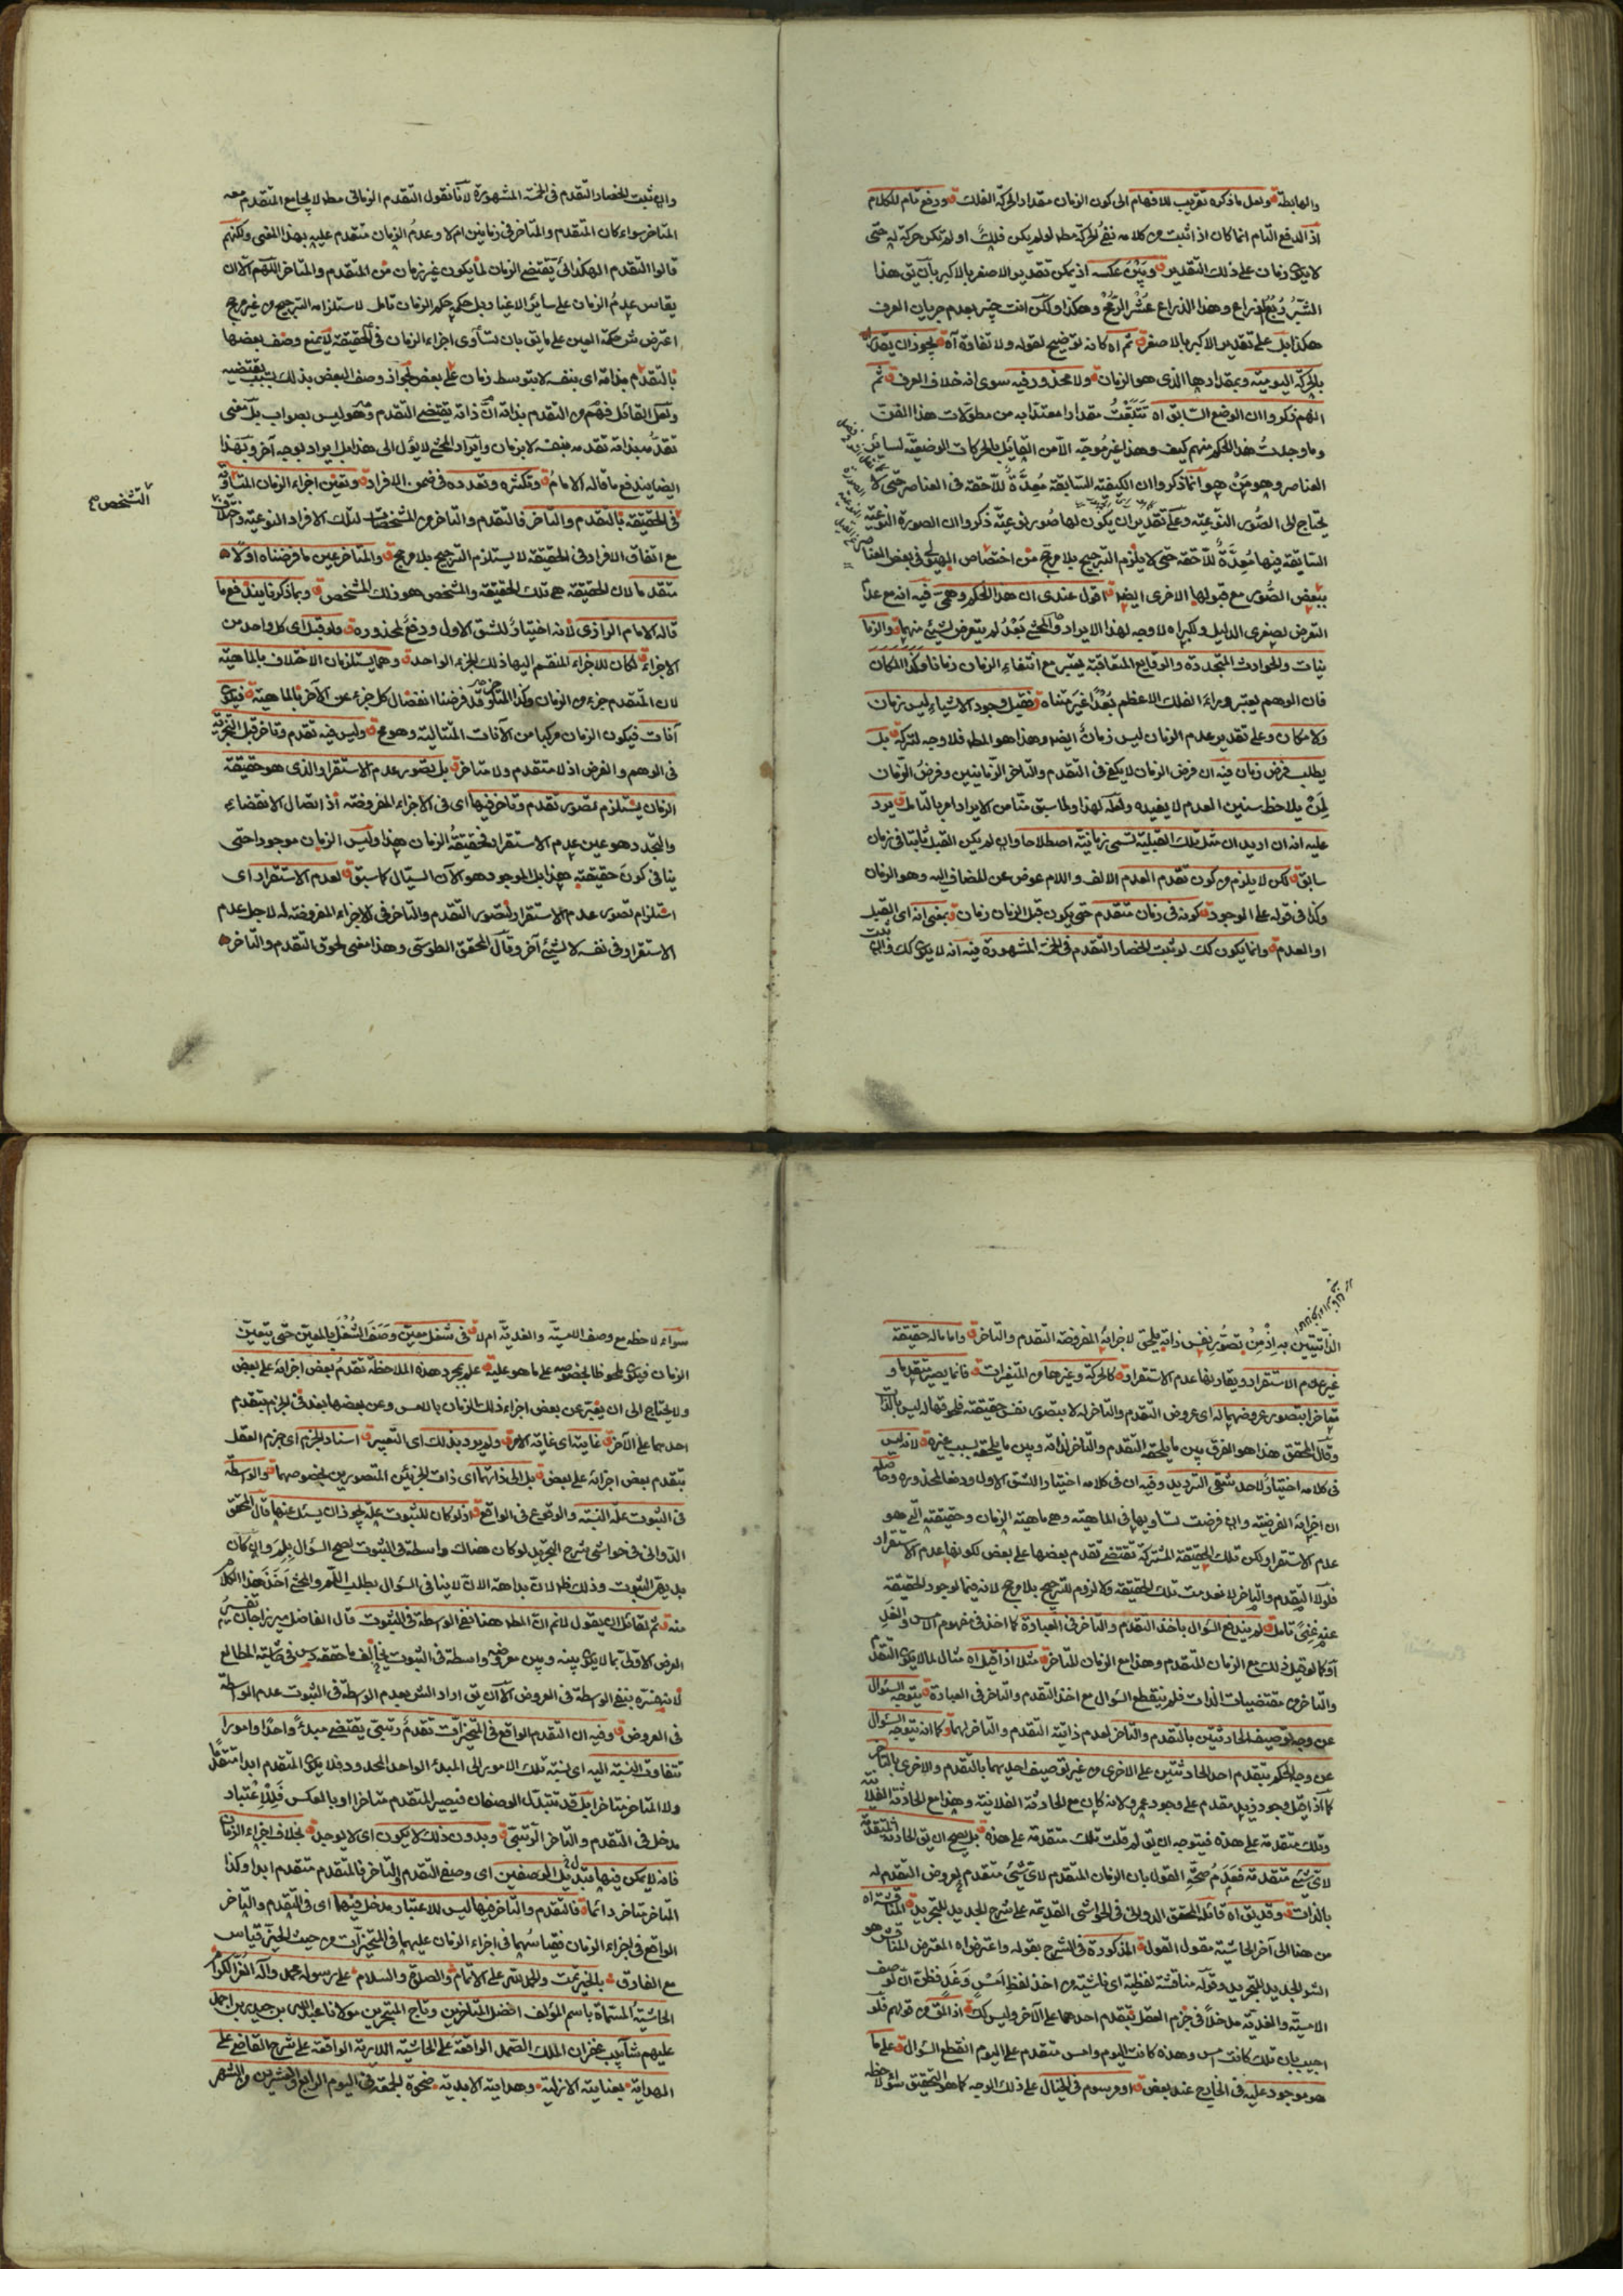 والهابطة ولعل ما ذكره تقريب للافهام الى كون الزمان مقدار الحركة الفلك ودفع تام للكلام
اذ الدفع التام انما كان اذا ثبت من كلامه نفى الحركة مطلقا لو لم يكن فلك او لم تكن حركة له حتى
لا يكون زمان على ذلك التقدير وبين عكسه اذ يمكن تقدير الاصغر بالاكبر بان يق هذا
الشبر ربع الذراع وهذا الذراع عشر الرمح وهكذا ولكن انت خبير بعدم جريان العرف
هكذا بل على تقدير الاكبر بالاصغر ثم اه كانه توضيح لقوله ولا تفاوة آه يجوز ان يقدر
بالحركة اليومية وبمقدارها الذى هو الزمان ولا محذور فيه سوى انه خلاف العرف ثم
انهم ذكروا ان الوضع السابق اه تتبعت مقدارا معتدا به من مطولات هذا الفن
وما وجدت هذا الحكم منهم كيف وهذا غير موجه الا من القائل بالحركات الوضعية لسائر
العناصر وهو من هو انما ذكروا ان الكيفية السابقة معدة للاحقة فى العناصر حتى لا
يحتاج الى الصور النوعية وعلى تقدير ان يكون لها صور نوعية ذكروا ان الصورة النوعية
السابقة فيها معدة للاحقة حتى لا يلزم الترجيح بلا مرجح من اختصاص الهيولى فى بعض العناصر
ببعض الصور مع قبولها الاخرى ايضا اقول عندى ان هذا الحكم وهمى فيه انه مع عدم
التعرض لصغرى الدليل وكبراه لا وجه لهذا الايراد والمحشى بعد لم يتعرض لشيئ منهما والزما
نيات والحوادث المتجددة والوقايع المتعاقبة يعتبر مع انتفاء الزمان زمانا وكذا المكان
فان الوهم يعتبر وراء الفلك الاعظم بعدا غير متناه فقبل وجود الاشياء ليس زمان
ولا مكان وعلى تقدير عدم الزمان ليس زمان ايضا وهذا هو المطلوب فلا وجه لتركه بل
يطلب فرض زمان فيه ان فرض الزمان لا يكفى فى التقدم والتاخر الزمانيين وفرض الزمان
لمن يلاحظ سنين العدم لا يفيده ولعله لهذا ولما سبق منا من الايراد امر بالتامل يرد
عليه انه ان اريد ان مثل تلك القبلية تسمى زمانية اصطلاحا وان لم يكن القبل ثابتا فى زمان
سابق لكن لا يلزم من كون تقدم العدم الالف واللام عوض عن المضاف اليه وهو الزمان
وكذا فى قوله على الوجود كونه فى زمان متقدم حتى يكون قبل الزمان زمان بمعنى انه اى القبل
او العدم وانما يكون كك لو ثبت انحصار التقدم فى الخمسة المشهورة فيه انه لا يكون كك وان
وان ثبت انحصار التقدم فى الخمسة المشهورة لانا نقول التقدم الزمانى مطلقا لا يجامع المتقدم معه
المتاخر سواء كان المتقدم والمتاخر فى زمانين ام لا وعدم الزمان متقدم عليه بهذا المعنى ولكنهم
قالوا التقدم الهكذائى يقتضى الزمان لما يكون غير زمان من المتقدم والمتاخر اللهم الا ان
يقاس عدم الزمان على سائر الاغيار بل حكمه حكم الزمان تامل لاستلزامه الترجيح من غير مرجح
اعترض شرح حكمة العين على ما يق بان تساوى اجزاء الزمان فى الحقيقة لا يمنع وصف بعضها
بالتقدم بذاته اى بنفسه لا بتوسط زمان على بعض لجواز وصف البعض بذلك بسبب يقتضيه
ولعل القائل فهم من التقدم بذاته ان ذاته يقتضى التقدم وهو ليس بصواب بل معنى
تقدمه بذاته تقدمه بنفسه لا بزمان وايراد المحشى لا يؤل الى هذا بل ايراد بوجه آخر وبهذا
ايضا يندفع ما قاله الامام وتكثره وتعدده فى ضمن الافراد وتعين اجزاء الزمان المتساوية
فى الحقيقة بالتقدم والتاخر فالتقدم والتاخر من المشخصات لتلك الافراد النوعية فاختلافها
مع اتفاق الافراد فى الحقيقة لا يستلزم الترجيح بلا مرجح والمتاخر عين ما فرضناه اولا
متقدما لان الحقيقة هى تلك الحقيقة والمشخص هو ذلك المشخص وبما ذكرنا يندفع ما
قاله الامام الرازى لانه اختيار للشق الاول ودفع لمحذوره ولو قيل اى كل واحد من
الاجزاء لكان للاجزاء المنقسم اليها ذلك الجزء الواحد وهما يستلزمان الاختلاف بالماهية
لان المتقدم جزء من الزمان وكذا المتاخر وقد فرضنا انفصال كل جزء عن الآخر بالماهية فيكون
آنات فيكون الزمان مركبا من الآنات المتتالية وهو مح وليس فيه تقدم وتاخر قبل التجزية
فى الوهم والفرض اذ لا متقدم ولا متاخر بل تصور عدم الاستقرار الذى هو حقيقة
الزمان يستلزم تصور تقدم وتاخر فيها اى فى الاجزاء المفروضة اذ اتصال الانقضاء
والتجدد هو عين عدم الاستقرار فحقيقة الزمان هذا وليس الزمان موجودا حتى
ينافى كون حقيقته هذا بل الموجود هو الآن السيال كما سبق لعدم الاستقرار اى
استلزام تصور عدم الاستقرار لتصور التقدم والتاخر فى الاجزاء المفروضة له لاجل عدم
الاستقرار فى نفسه لا لشيئ آخر وقال المحقق الطوسى وهذا معنى لحوق التقدم والتاخر
التشخص
الذاتيتين به اذ من تصور نفس ذاته يلحق لاجزائه المفروضة التقدم والتاخر واما ما له حقيقة
غير عدم الاستقرار ويقارنها عدم الاستقرار كالحركة وغيرها من المتغيرات فانما يصير متقدما و
متاخرا بتصور عروضهما له اى عروض التقدم والتاخر له لا بتصور نفس حقيقته فلحوقهما له ليس بالذات
وقال المحقق هذا هو الفرق بين ما يلحقه التقدم والتاخر لذاته وبين ما يلحقه بسبب غيره لانه ليس
فى كلامه اختيار لاحد شقى الترديد وفيه ان فى كلامه اختيار الشق الاول ودفعا لمحذوره وحاصله
ان اجزائه الفرضية وان فرضت تساويها فى الماهية وهى ماهية الزمان وحقيقته التى هو
عدم الاستقرار لكن تلك الحقيقة المشتركة تقتضى تقدم بعضها على بعض لكونها عدم الاستقرار
فلولا التقدم والتاخر لانعدمت تلك الحقيقة ولا لزوم للترجيح بلا مرجح لانه فيما لوجود الحقيقة
عنه غنى تامل لم يندفع السؤال باخذ التقدم والتاخر فى العبارة كما اخذ فى مفهوم الامس والغد
او كما لو قيل ذلك مع الزمان المتقدم وهذا مع الزمان المتاخر مثلا اذا قيل اه مثال لما لا يكون التقدم
والتاخر من مقتضيات الذات فلم ينقطع السؤال مع اخذ التقدم والتاخر فى العبارة يتوجه السؤال
عن وجه توصيف الحادثتين بالتقدم والتاخر لعدم ذاتية التقدم والتاخر لهما وكما انه يتوجه السؤال
عن وجه الحكم بتقدم احد الحادثتين على الاخرى من غير توصيف احديهما بالتقدم والاخرى بالتاخر
كما اذا قيل وجود زيد مقدم على وجود عمرو لانه كان مع الحادثة الفلانية وهذا مع الحادثة الفلانية
وتلك متقدمة على هذه فيتوجه ان يق لم قلت تلك متقدمة على هذه بل يصح ان يق الحادثة المتقدمة
لاى شيئ متقدمة فعدم صحة القول بان الزمان المتقدم لاى شيئ متقدم لعروض التقدم له
بالذات وقد يق اه قائله المحقق الدوانى فى الحواشى القديمة على شرح الجديد للتجريد المناقشة اه
من هنا الى آخر الحاشية مقول القول المذكورة فى الشرح بقوله واعترض اه المعترض المناقش هو
الشرح الجديد للتجريد وقوله مناقشة لفظية اى ناشية من اخذ لفظ امس وغد فظن ان لوصف
الامسية والغدية مدخلا فى جزم العقل بتقدم احدهما على الآخر وليس كك اذ المق من قولهم فلو
اجيب بان تلك كانت امس وهذه كانت اليوم وامس متقدم على اليوم انقطع السؤال على ما
هو موجود عليه فى الخارج عند بعض او مرسوم فى الخيال على ذلك الوجه كما هو التحقيق سواء لاحظه
سواء لاحظه مع وصف الامسية والغدية ام لا فى شغل معين وصف الشغل بالمعين حتى يتعين
الزمان فيكون ملحوظا بخصوصه على ما هو عليه علم بمجرد هذه الملاحظة تقدم بعض اجزائه على بعض
ولا يحتاج الى ان يعبر عن بعض اجزاء ذلك الزمان بالامس وعن بعضها بغد فى الجزم بتقدم
احدهما على الآخر غايته اى غاية الامر ولم يرد بذلك اى التعبير اسناد الجزم اى جزم العقل
بتقدم بعض اجزائه على بعض بل الى ذاتهما اى ذات الجزئين المتصورين بخصوصهما والواسطة
فى الثبوت علة النسبة والوقوع فى الواقع اذ لو كان للثبوت علة يجوز ان يسئل عنها قال المحقق
الدوانى فى حواشى شرح التجريد لو كان هناك واسطة فى الثبوت لصح السؤال بلم وان كان
بديهى الثبوت وذلك ظ لان بداهة الان لا ينافى السؤال بطلب اللم والمحشى اخذ هذا الكلام
منه ثم لقائل ان يقول لانم ان المط ههنا نفى الواسطة فى الثبوت قال الفاضل ميرزاجان تفسير
العرض الاولى بما لا يكون بينه وبين معروضه واسطة فى الثبوت يخالف ما حققه س فى حاشية المطالع
لانه فسره بنفى الواسطة فى العروض الا ان يق اراد الش بعدم الواسطة فى الثبوت عدم الواسطة
فى العروض وفيه ان التقدم الواقع فى المتحيزات تقدم رتبى يقتضى مبدء واحدا وامورا
تتفاوت النسبة اليه اى نسبة تلك الامور الى المبدء الواحد المحدود فلا يكون المتقدم ابدا متقدما
ولا المتاخر متاخرا بل قد تتبدل الوصفان فيصير المتقدم متاخرا او بالعكس فللاعتبار
مدخل فى التقدم والتاخر الرتبى وبدون ذلك لا يكون اى لا يوجد بخلاف اجزاء الزمان
فانه لا يمكن فيها تبديل الوصفين اى وصفى التقدم والتاخر فالمتقدم متقدم ابدا وكذا
المتاخر متاخر دائما فالتقدم والتاخر فيها ليس للاعتبار مدخل فيهما اى فى التقدم والتاخر
الواقع فى اجزاء الزمان فقياسهما فى اجزاء الزمان عليهما فى المتحيزات من حيث الحيز قياس
مع الفارق بالخير تمت والحمد لله على الاتمام والصلوة والسلام على رسوله محمد وآله الغر الكرام
الحاشية المسماة باسم المؤلف افضل المتاخرين وتاج المتبحرين مولانا عبد الله بن حيدر بن احمد
عليهم شآبيب غفران الملك الصمد الواقعة على الحاشية اللارية الواقعة على شرح القاضى على
الهداية بعنايته الازلية وهدايته الابدية ضحوة الجمعة فى اليوم الرابع والعشرين والشهر